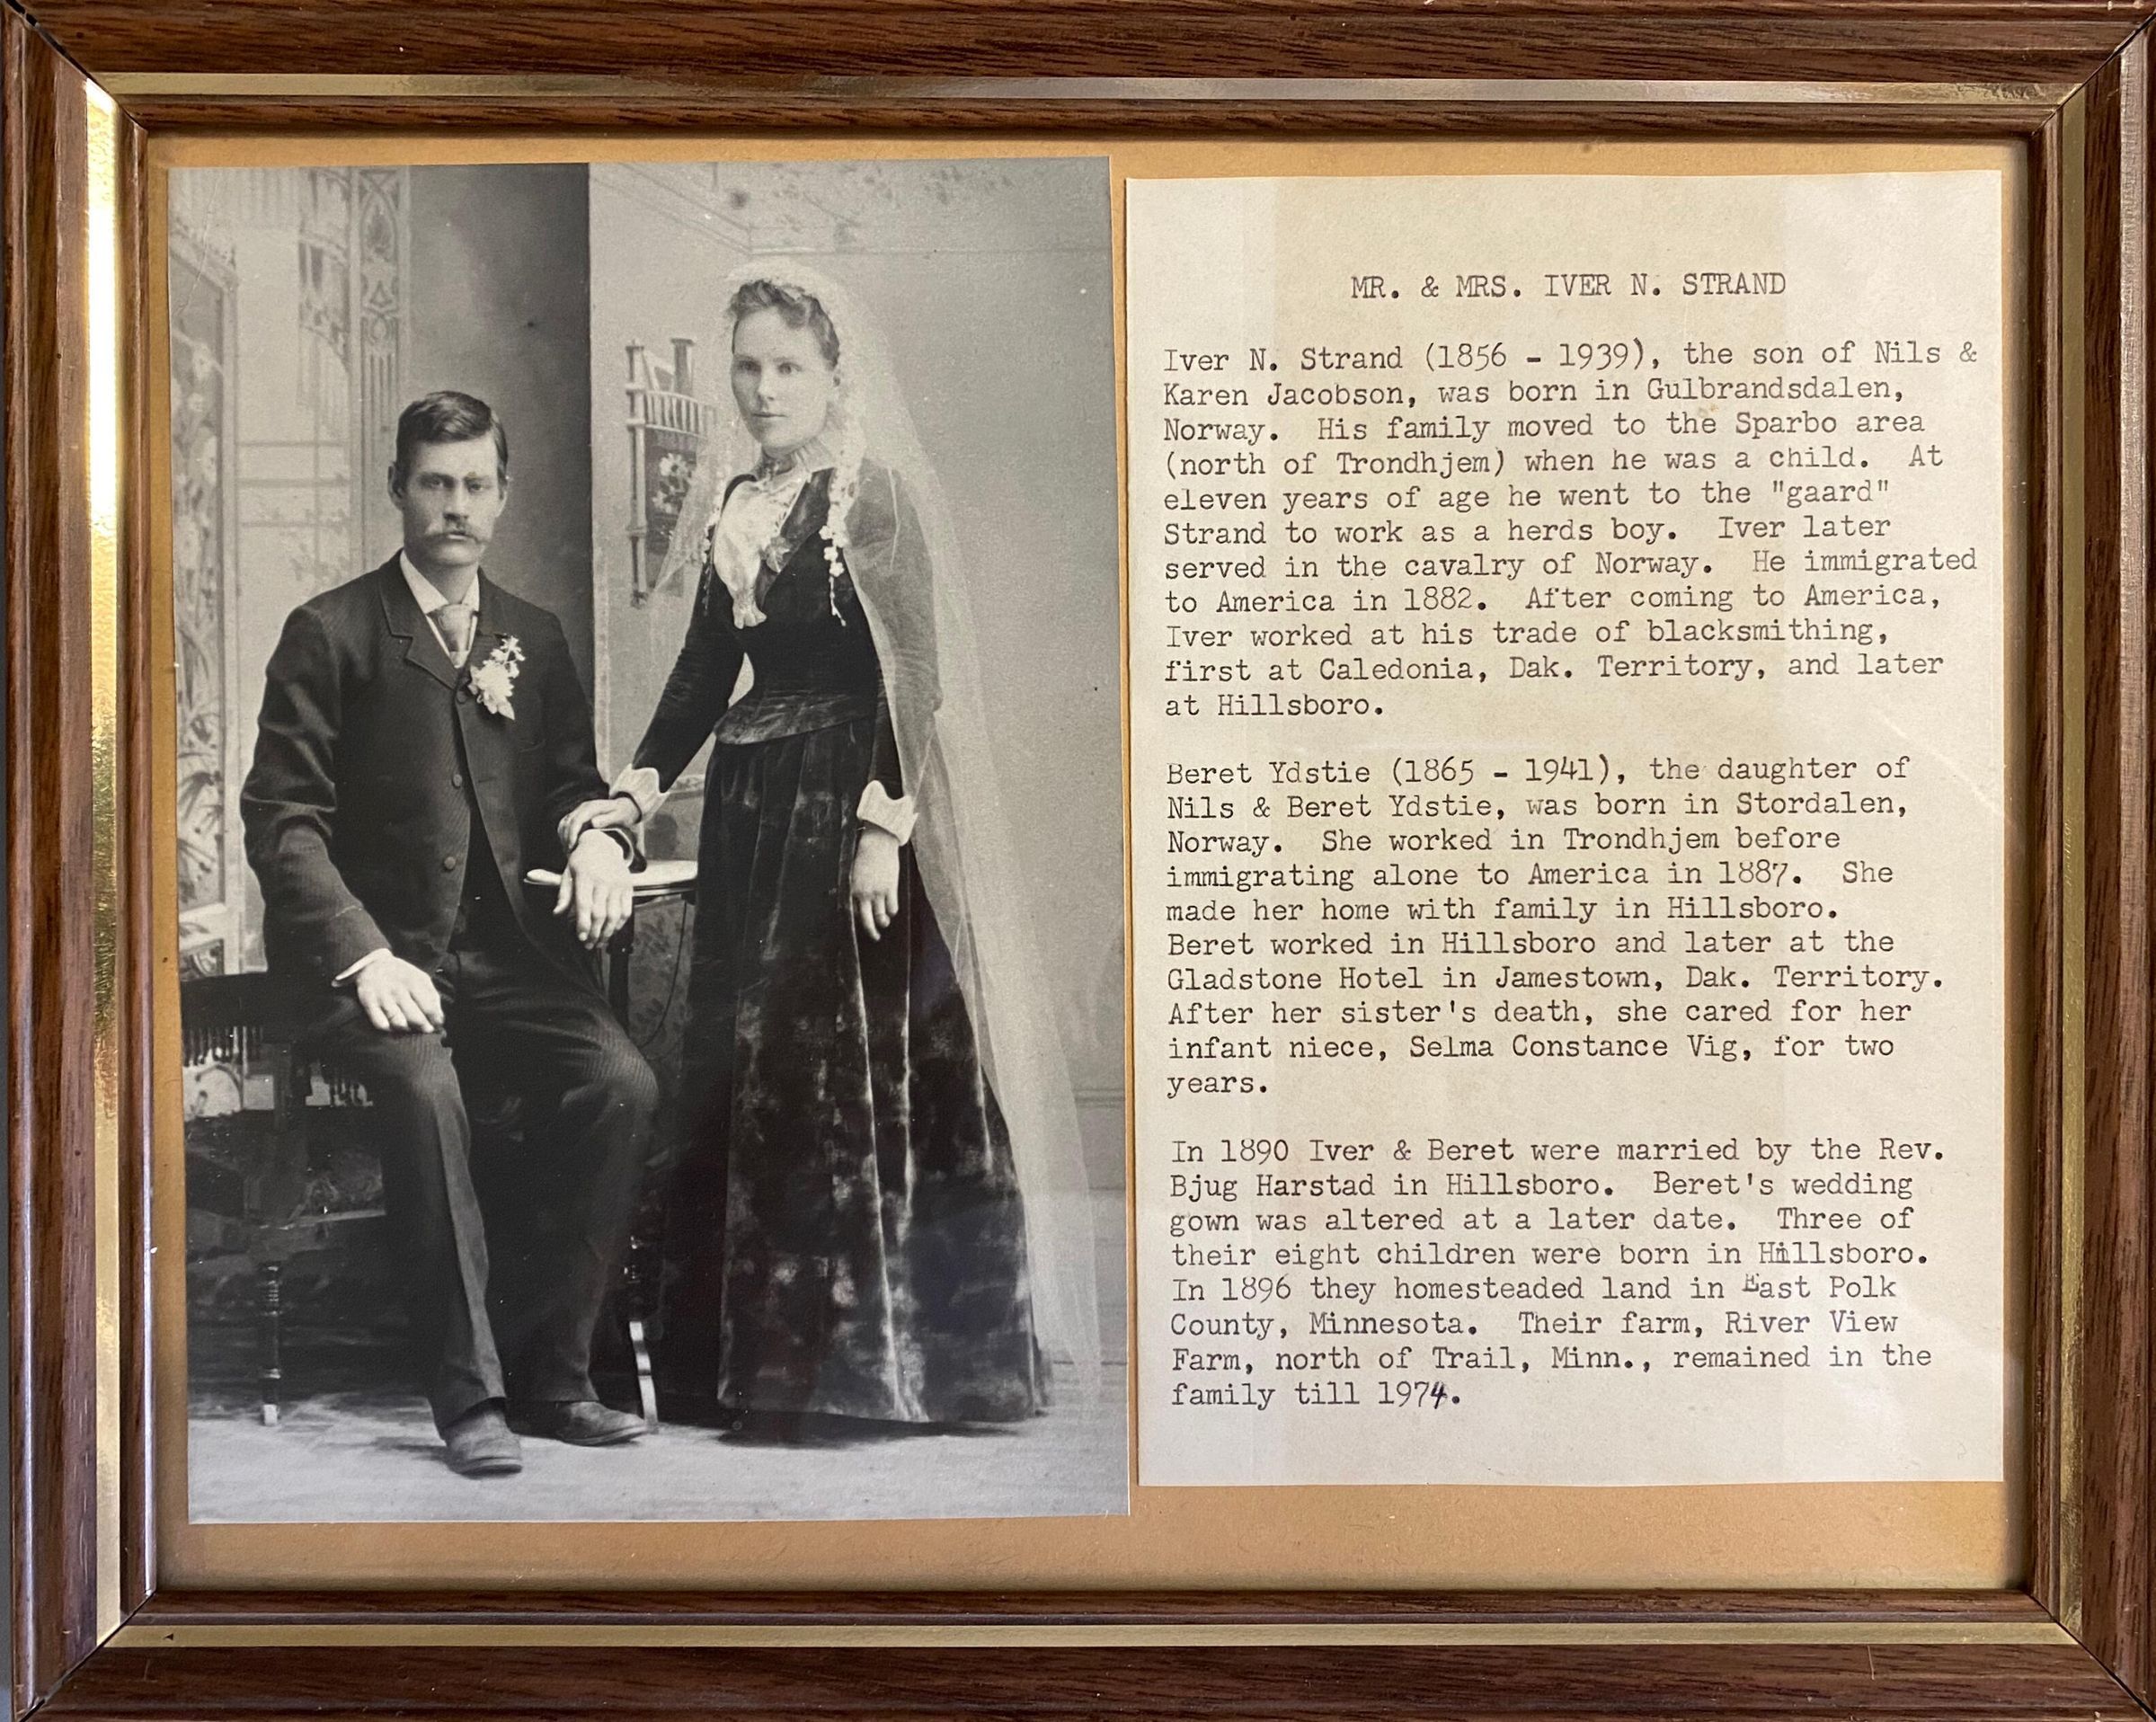 MR. & MRS. IVER N. STRAND
Iver N. Strand (1856 - 1939), the son of Nils &
Karen Jacobson, was born in Gulbrandsdalen,
Norway.  His family moved to the Sparbo area
(north of Trondhjem) when he was a child.  At
eleven years of age he went to the "gaard"
Strand to work as a herds boy.  Iver later
served in the cavalry of Norway.  He immigrated
to America in 1882.  After coming to America,
Iver worked at his trade of blacksmithing,
first at Caledonia, Dak. Territory, and later
at Hillsboro.
Beret Ydstie (1865 - 1941), the daughter of
Nils & Beret Ydstie, was born in Stordalen,
Norway.  She worked in Trondhjem before
immigrating alone to America in 1887.  She
made her home with family in Hillsboro.
Beret worked in Hillsboro and later at the
Gladstone Hotel in Jamestown, Dak. Territory.
After her sister's death, she cared for her
infant niece, Selma Constance Vig, for two
years.
In 1890 Iver & Beret were married by the Rev.
Bjug Harstad in Hillsboro.  Beret's wedding
gown was altered at a later date.  Three of
their eight children were born in Hillsboro.
In 1896 they homesteaded land in East Polk
County, Minnesota.  Their farm, River View
Farm, north of Trail, Minn., remained in the
family till 1974.